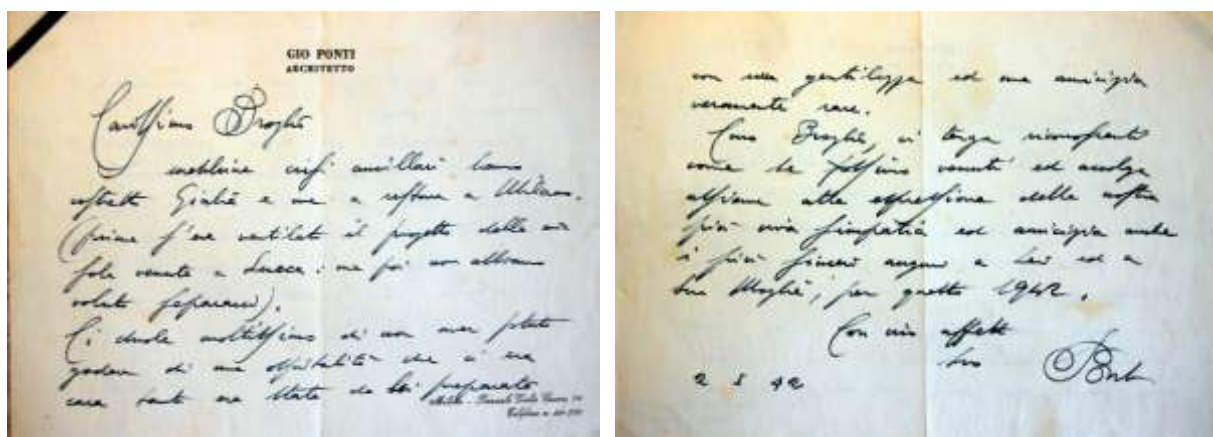 GIO PONTI
ARCHITETTO
Carissimo Broglio
crisi ancillari hanno
costretto Giulia e me a restare a Milano.
(prima s'era ventilato il progetto della mia
sola venuta a Lucca: ma poi non abbiamo
voluto separarci).
Ci duole moltissimo di non aver potuto
godere di una ospitalità che ci era
cara tanto era stata da Lei preparata
con una gentilezza ed una amicizia
veramente rare.
Caro Broglio, ci tenga riconoscenti
come se fossimo venuti ed accolga
assieme alle espressione della nostra
più viva simpatia ed amicizia anche
i più sinceri auguri a Lei ed a
Sua Moglie, per questo 1942.
Con vivo affetto
Suo Ponti
2 1 42